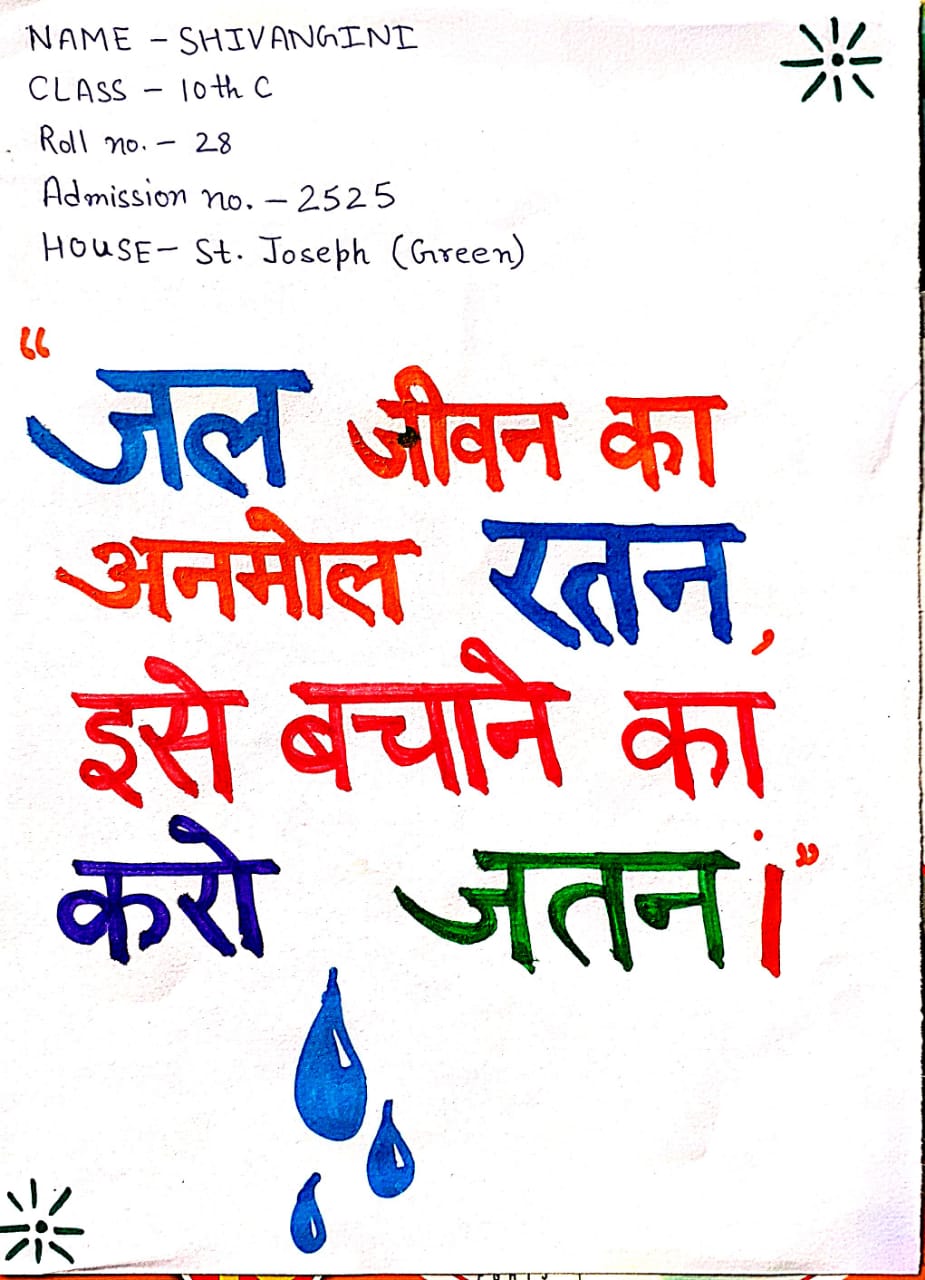 NAME - SHIVANGINI
CLASS - 10th C
Roll no. - 28
Admission no. - 2525
HOUSE - St. Joseph (Green)
“जल जीवन का
अनमोल रतन,
इसे बचाने का
करो जतन।”